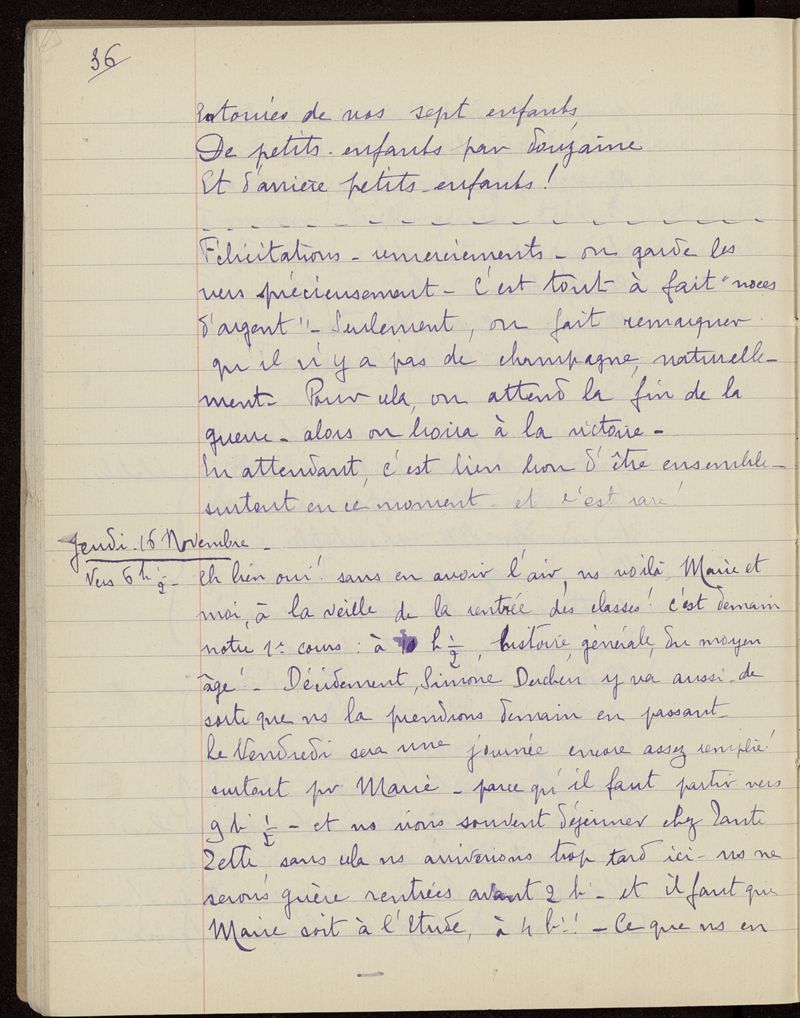 36
Entourées de nos sept enfants,
De petits-enfants par douzaine
Et d'arrière petits-enfants !
Félicitations - remerciements - on garde les
vers précieusement - C'est tout à fait "noces
d'argent" - Seulement, on fait remarquer
qu'il n'y a pas de champagne, naturelle-
ment - Pour cela, on attend la fin de la
guerre - alors on boira à la victoire -
En attendant, c'est bien bon d'être ensemble -
surtout en ce moment - et c'est rare !
Jeudi 16 Novembre -
Vers 6 h 1/2 - Eh bien oui ! sans en avoir l'air, ns voilà, Marie et
moi, à la veille de la rentrée des classes ! c'est demain
notre 1er cours : à 10 h 1/2, histoire générale, du moyen
âge ! - Décidément, Simone Duchen y va aussi - de
sorte que ns la prendrons demain en passant -
Le Vendredi sera une journée encore assez remplie !
surtout pr Marie - parce qu'il faut partir vers
9 h 1/2 - et ns irons souvent déjeuner chez Tante
Zette sans cela ns arriverions trop tard ici - ns ne
serons guère rentrées avant 2 h - et il faut que
Marie soit à l'Etude, à 4 h !! - Ce que ns en